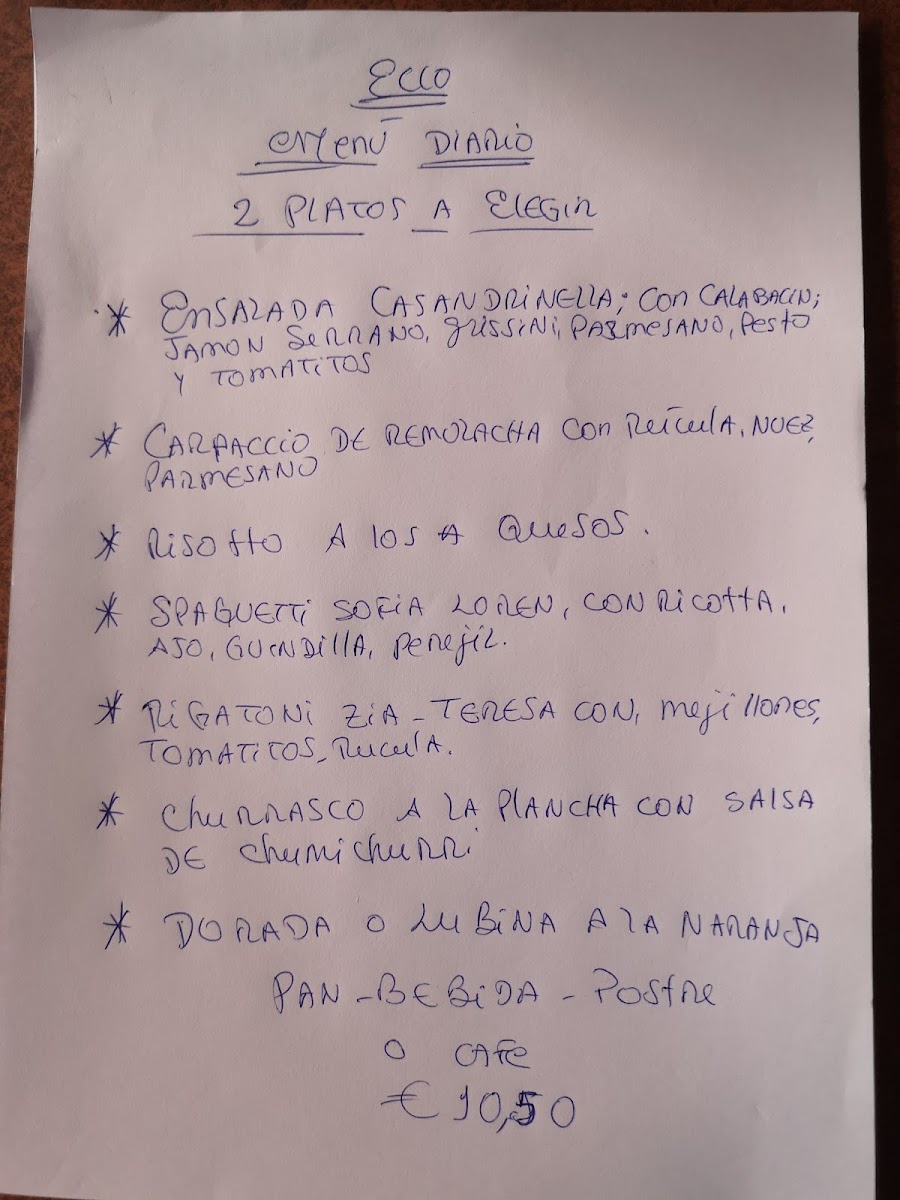 Ecco
Menú DIARIO
2 PLATOS A ELEGIR
* ENSALADA CASANDRINELLA; CON CALABACIN;
JAMON SERRANO, grissini, PARMESANO, Pesto
Y TOMATITOS
* CARPACCIO DE REMOLACHA CON Rúcula, NUEZ,
PARMESANO
* Risotto A los 4 Quesos.
* SPAGUETTI SOFIA LOREN, CON RICOTTA,
AJO, GUINDILLA, perejil.
* RIGATONI ZIA-TERESA CON, mejillones,
TOMATITOS, Rucula.
* CHURRASCO A LA PLANCHA CON SALSA
DE Chumichurri
* DORADA O LUBINA A LA NARANJA
PAN - BEBIDA - Postre
O CAFE
€ 10,50